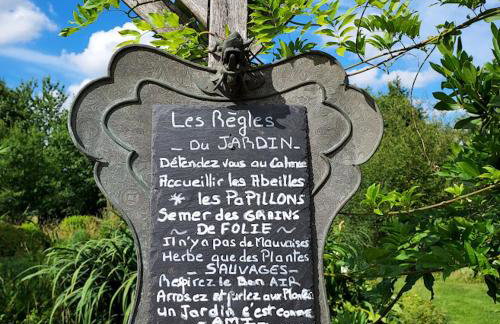 Les Règles
- DU JARDIN -
Détendez vous au Calme
Accueillir les Abeilles
* les PAPILLONS
Semer des GRAINS
~ DE FOLIE ~
Il n'y a pas de Mauvaises
Herbe que des Plantes
- SAUVAGES -
Respirez le Bon AIR
Arrosez et parlez aux Plantes
un Jardin c'est comme
- AMI -